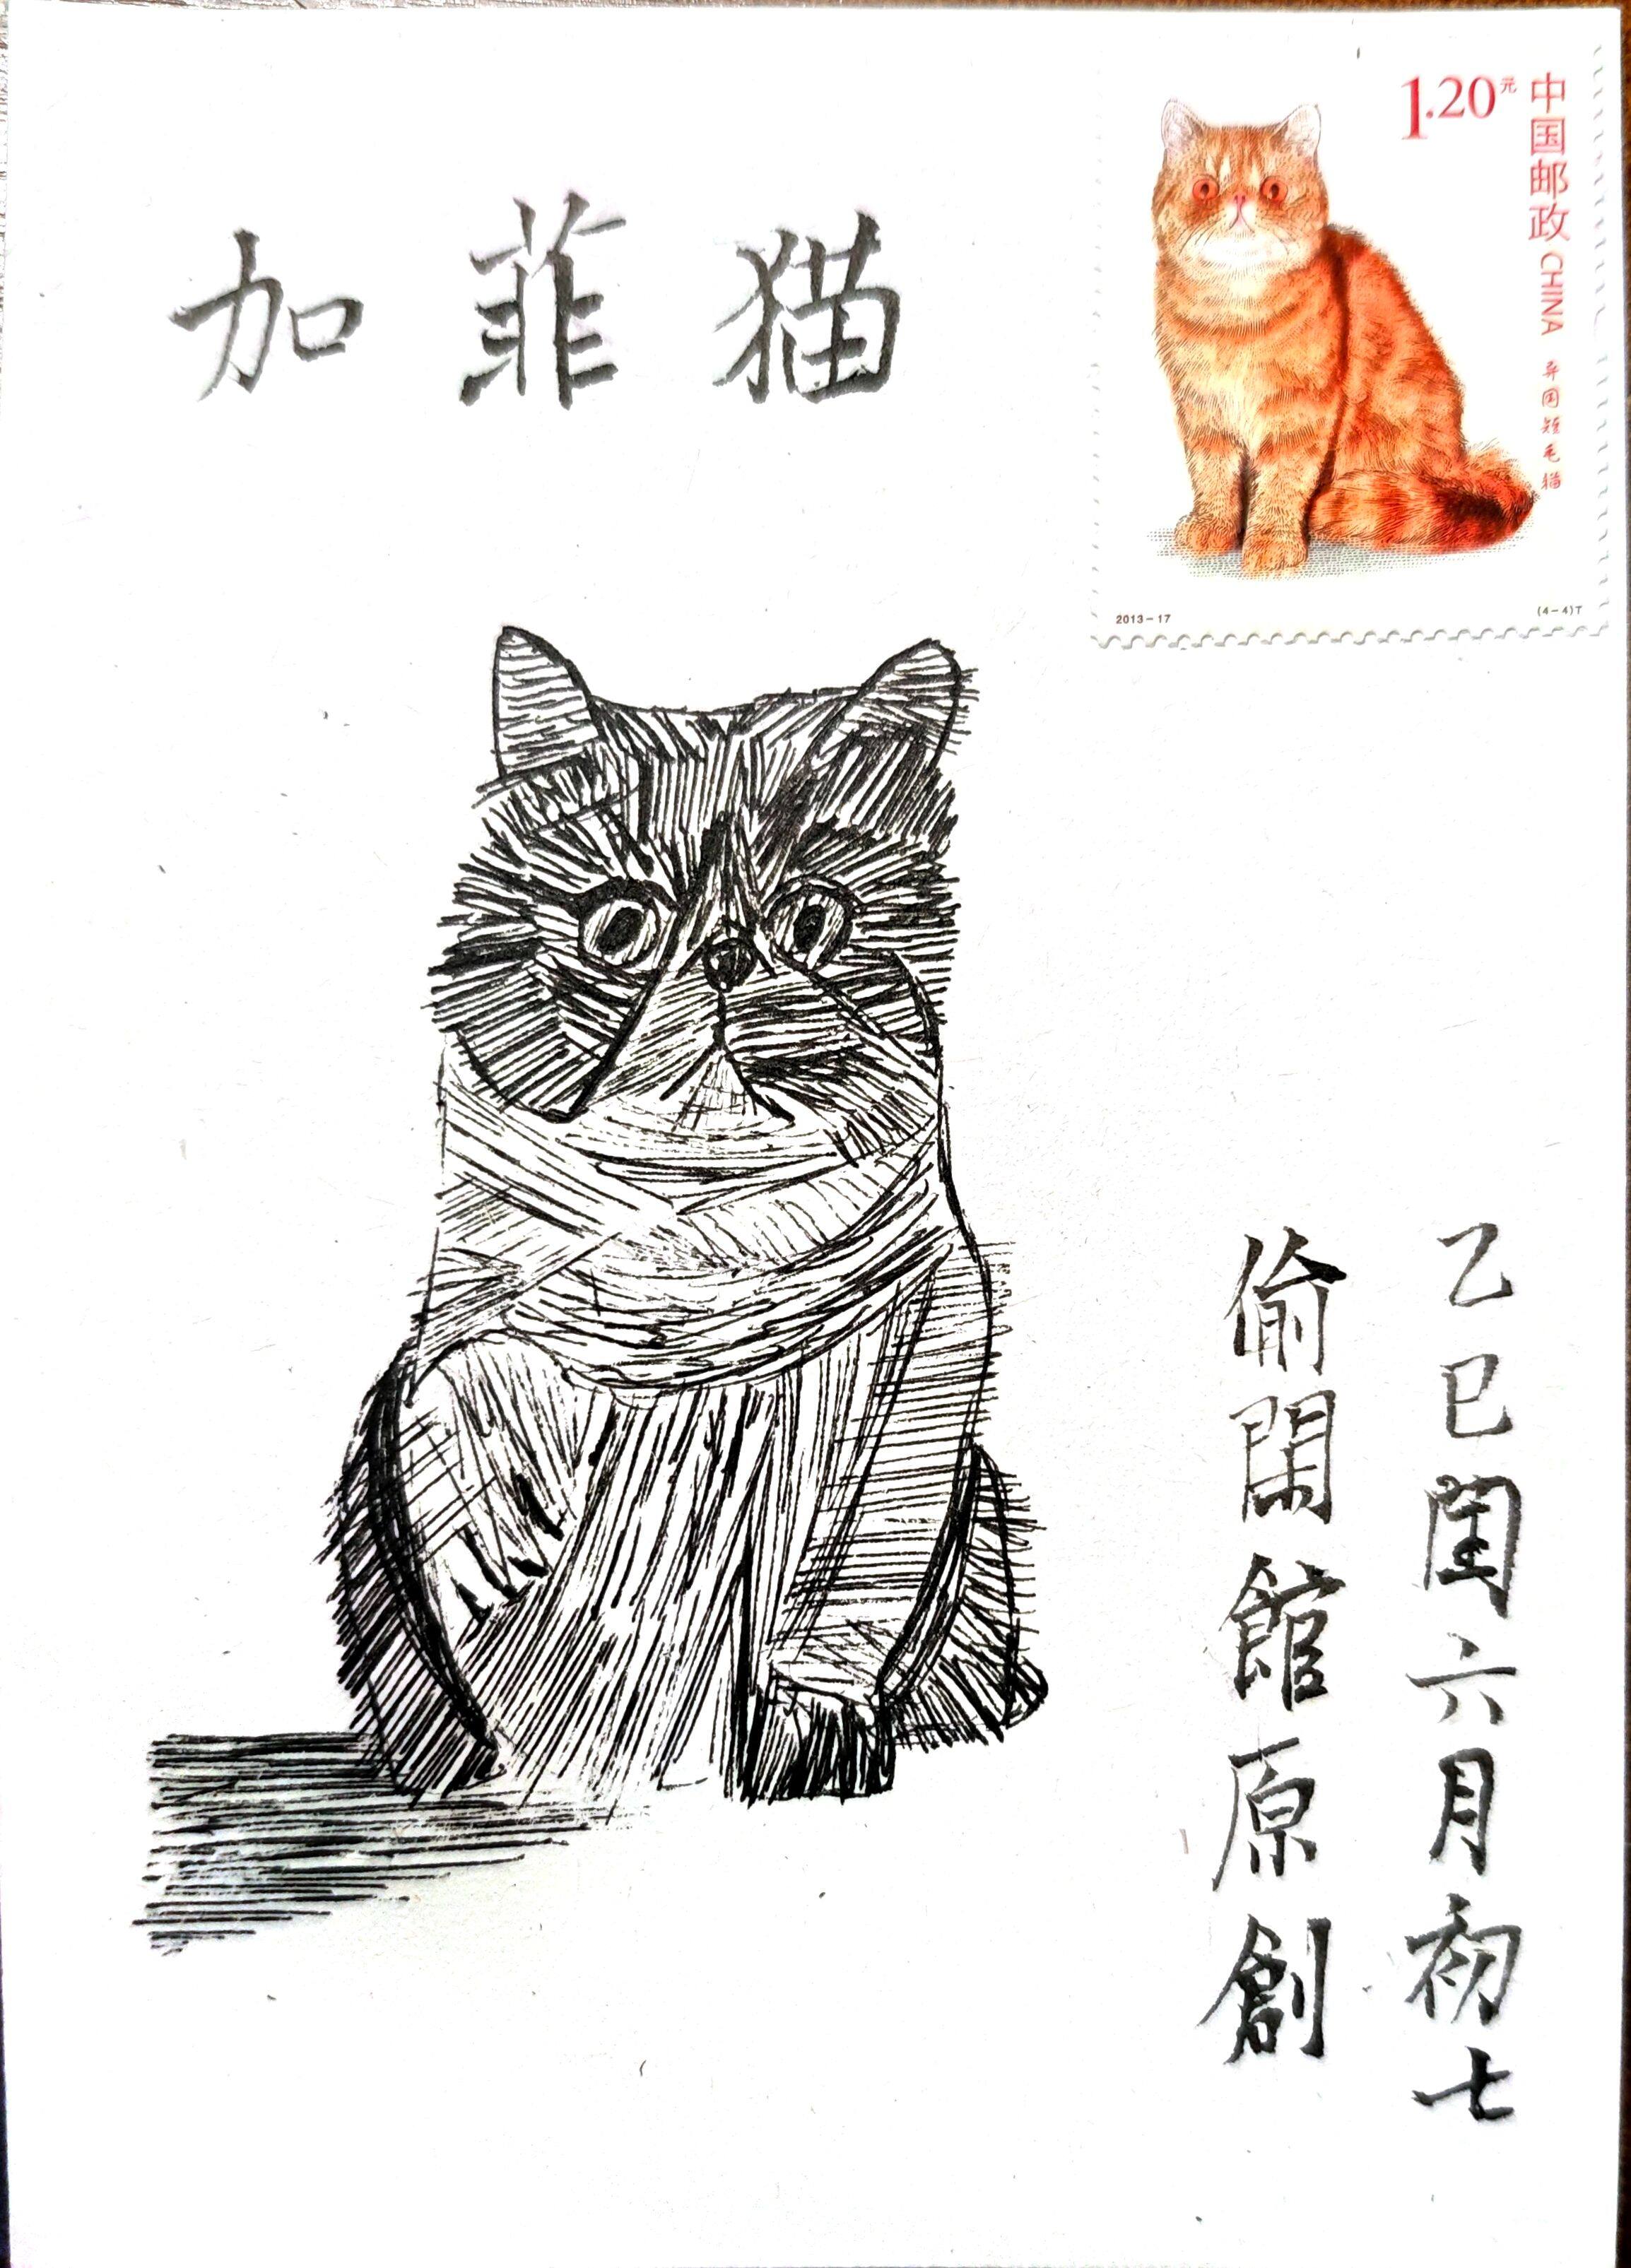 加菲猫
1.20元
中国邮政 CHINA
异国短毛猫
2013-17
(4-4)T
乙巳閏六月初七
偷閑館原創